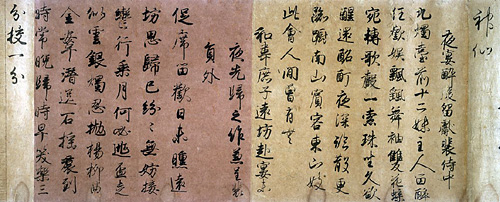 神仙
夜宴醉後留獻裴侍中
九燭臺前十二姝主人留醉
任歡娛飄飖舞袖雙飛蝶
宛轉歌聲一索珠坐久欲
醒還酩酊夜深初散更
踟躕南山賓客東山妓
此會人間曾有無
和韋庶子遠坊赴宴未
夜先歸之作兼呈裴
員外
促席留歡日未曛遠
坊思歸已紛紛無妨按
轡行乘月何必逃盃走
似雲銀燭忍拋楊柳曲
金鞍潛送石榴裙到
時常晚歸時早笑樂三
分校一分